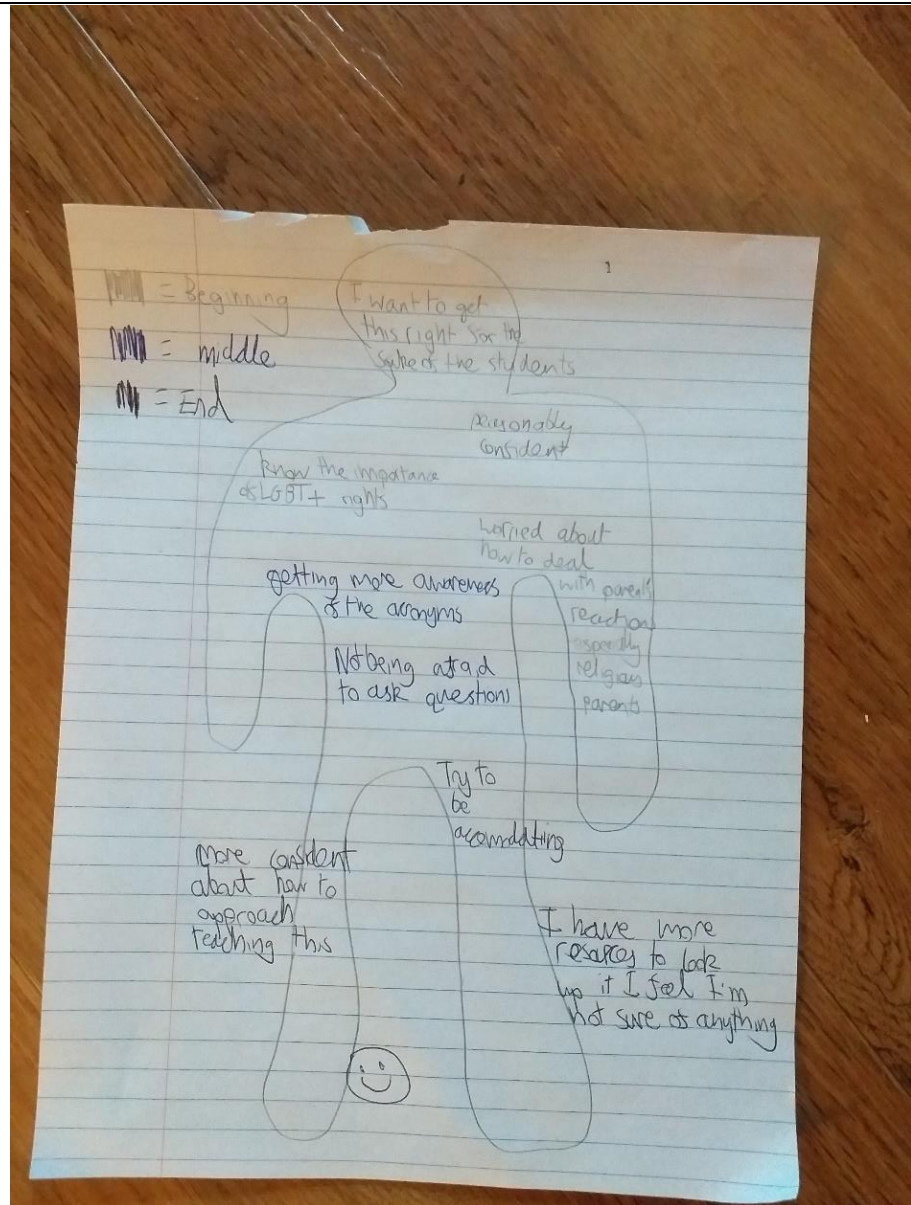 1
= Beginning
= middle
= End
I want to get
this right for the
sake of the students
personably
confident
know the importance
of LGBT+ rights
worried about
how to deal
with parents
reaction
especially
religious
parents
getting more awareness
of the acronyms
Not being afraid
to ask questions
Try to
be
accomodating
more confident
about how to
approach
teaching this
I have more
resources to look
up if I feel I'm
not sure of anything